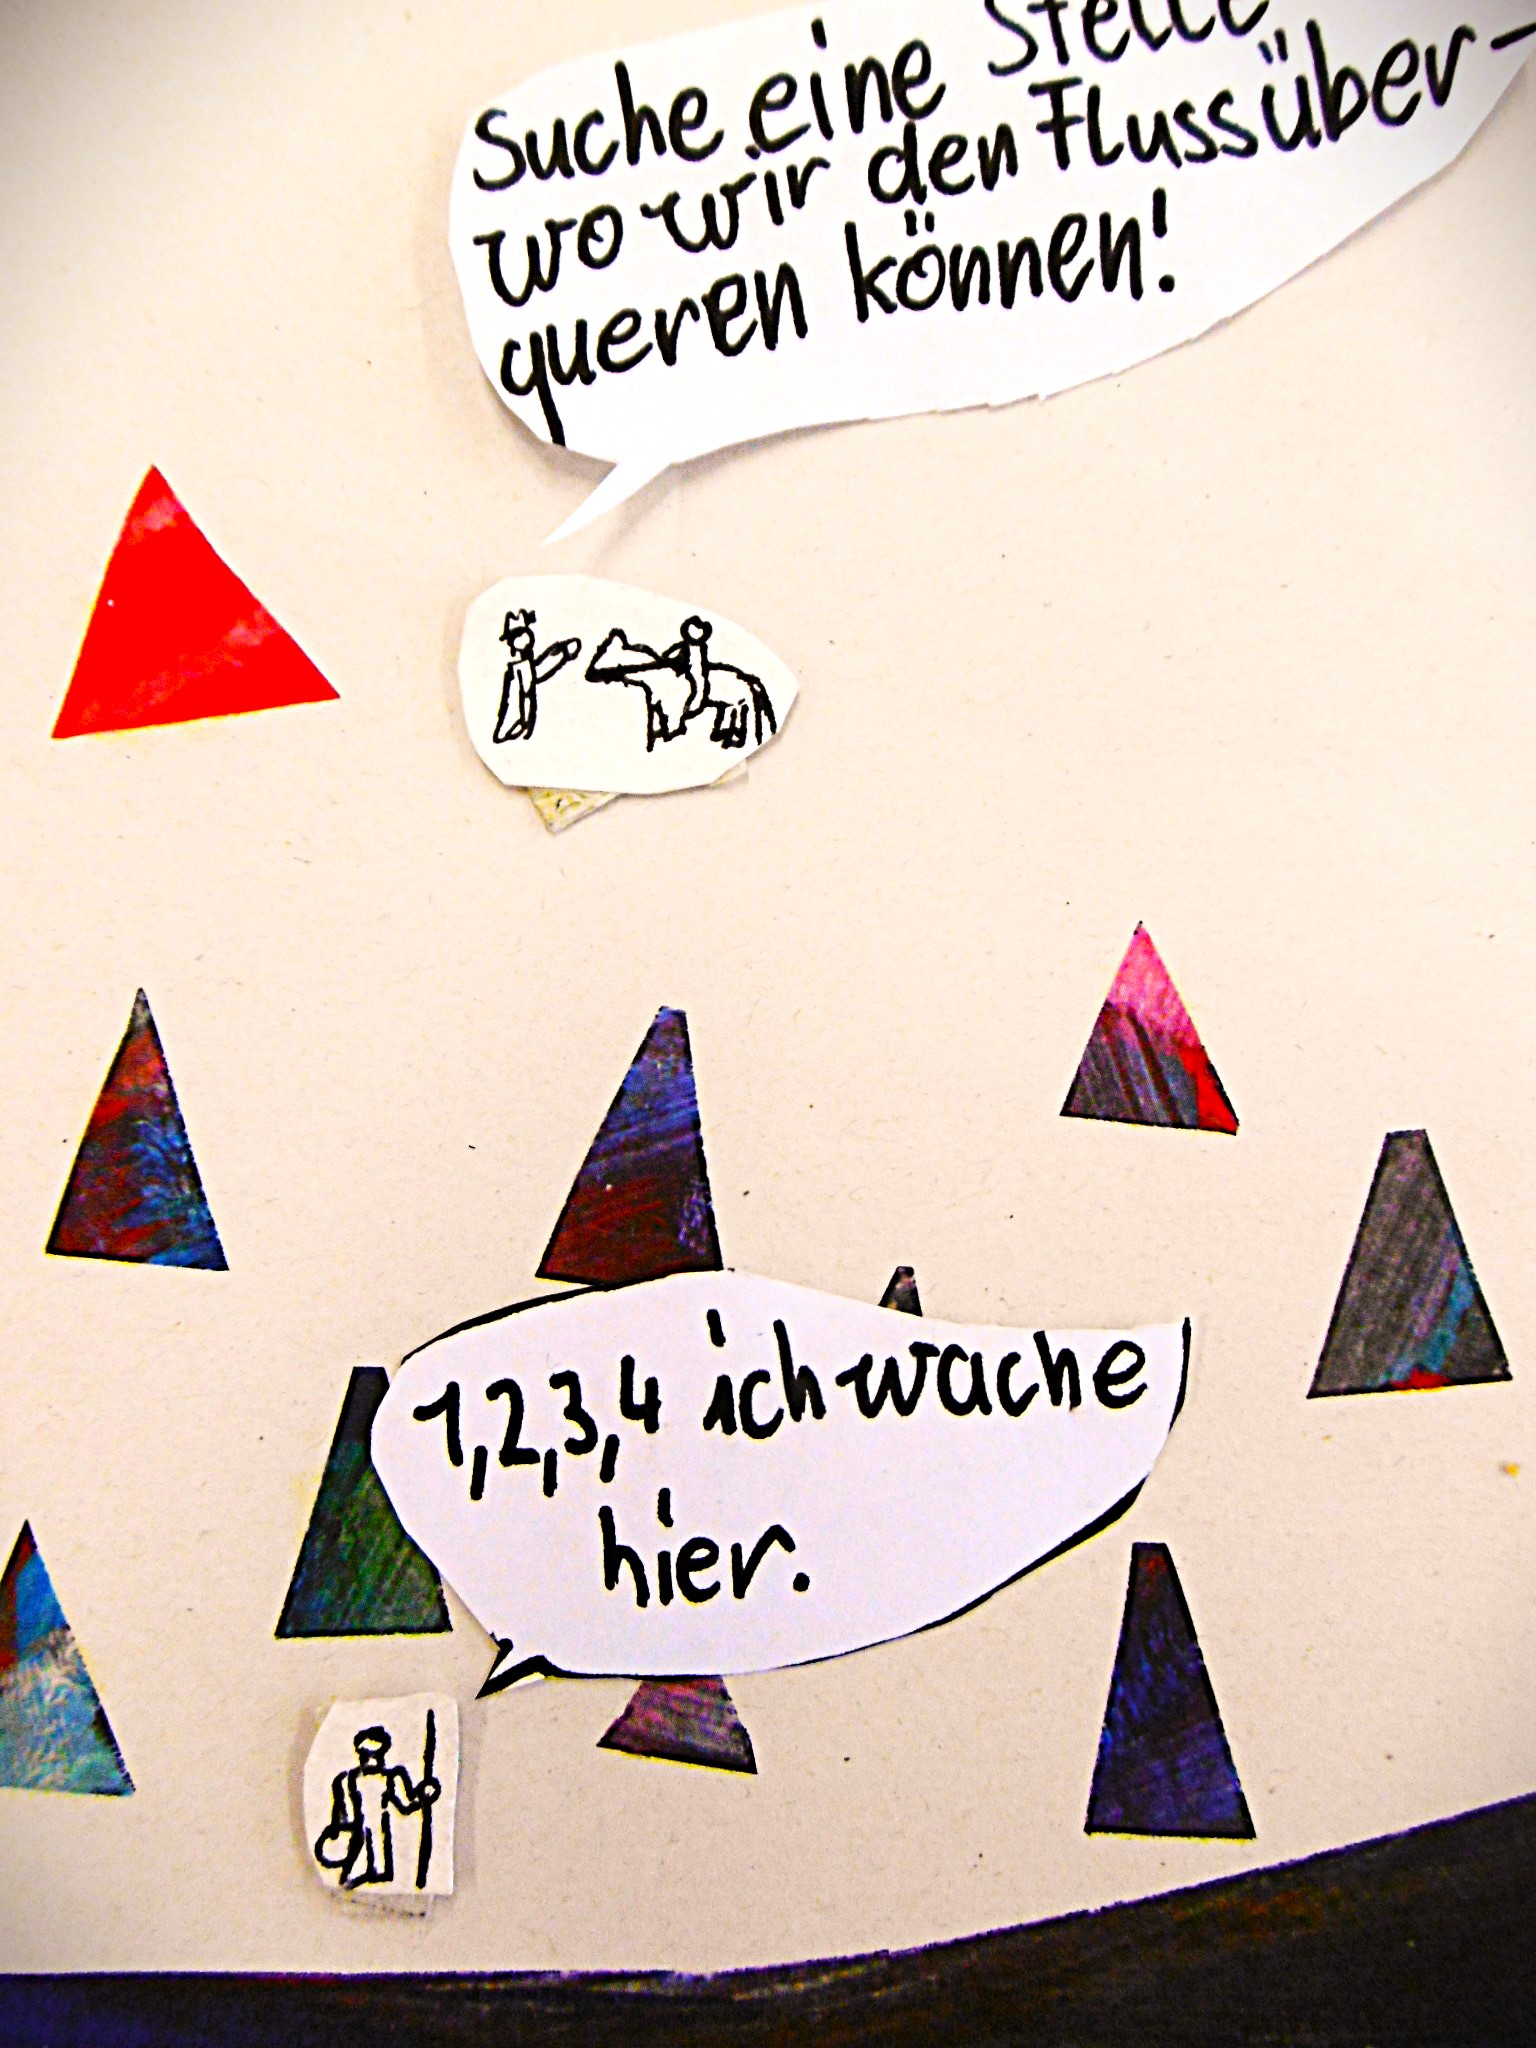 Suche eine Stelle
wo wir den Fluss über-
queren können!
1,2,3,4 ich wache
hier.